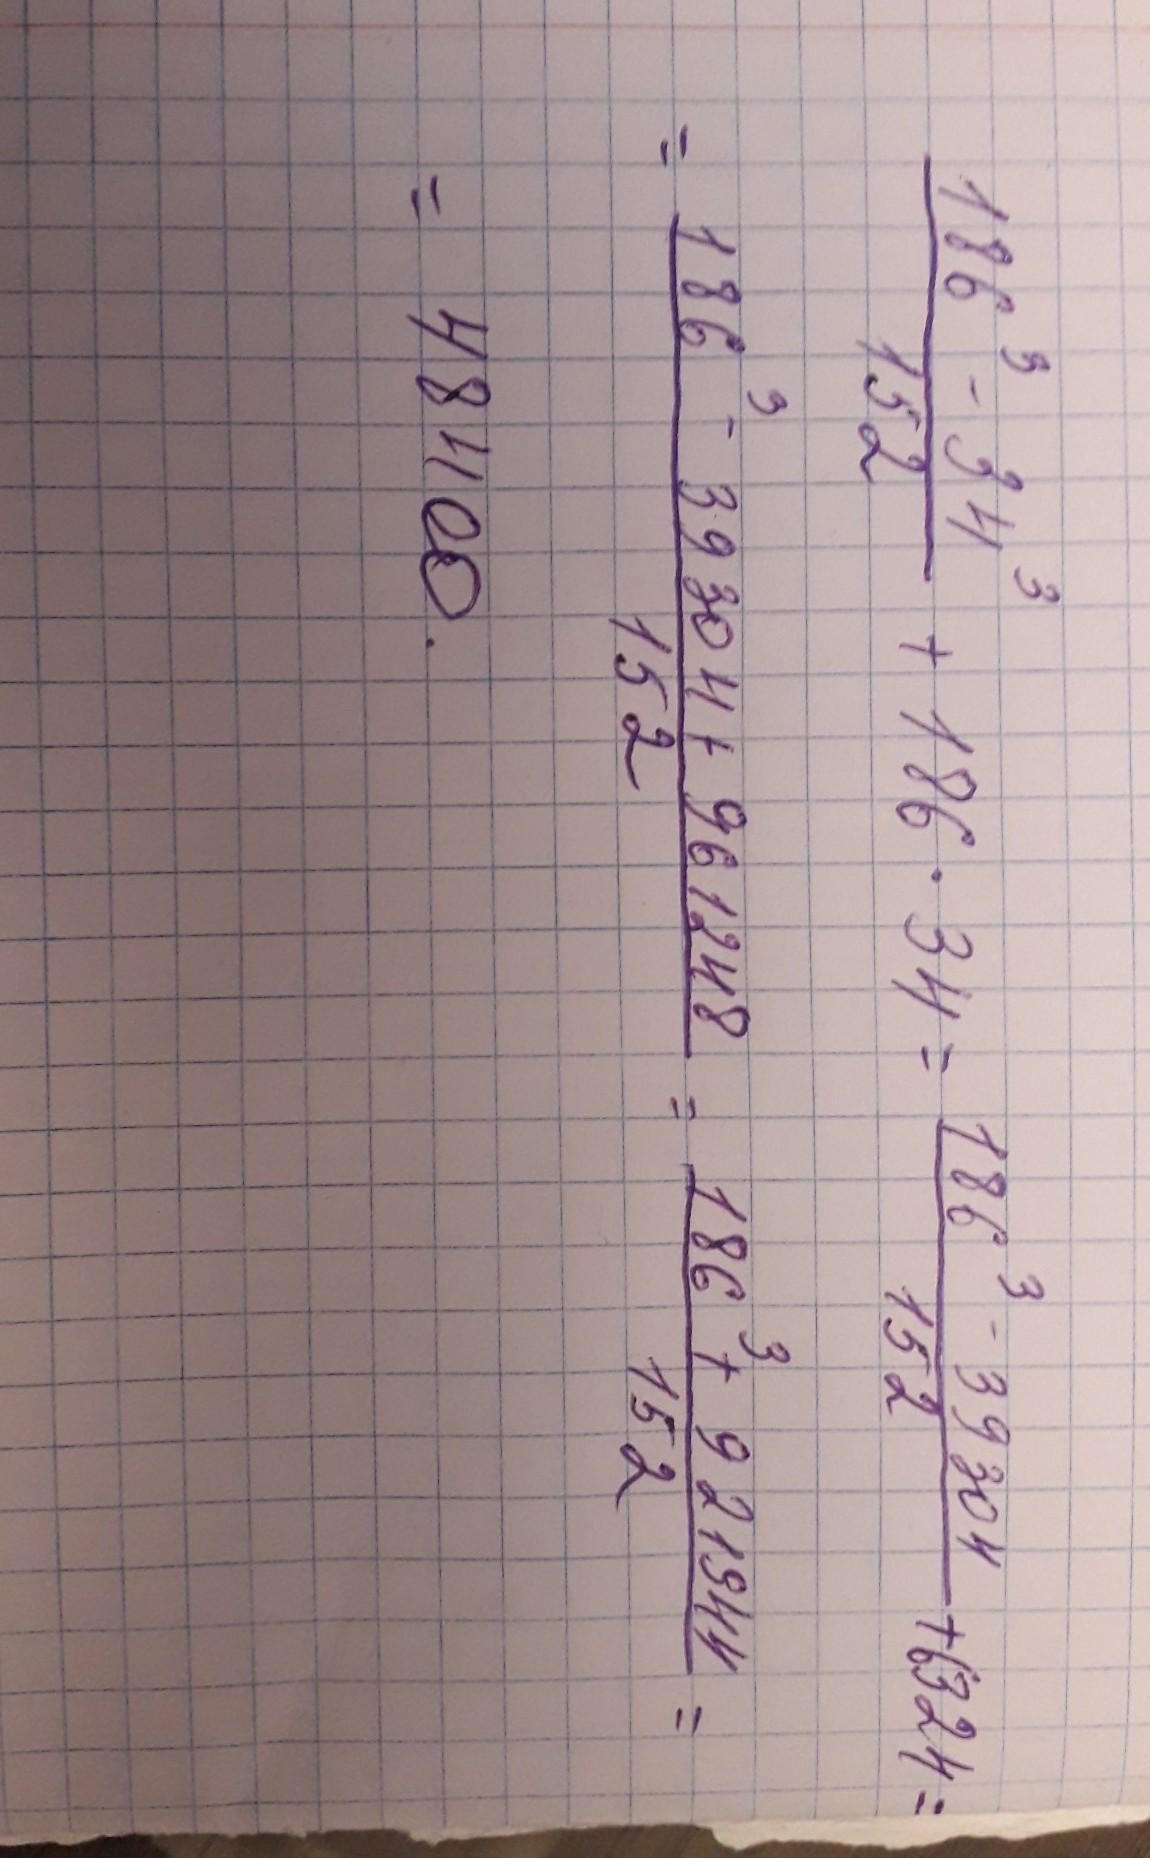 (186³ - 34³)/152 + 186 · 34 = (186³ - 39304)/152 + 6324 =
= (186³ - 39304 + 961248)/152 = (186³ + 921944)/152 =
= 48400.